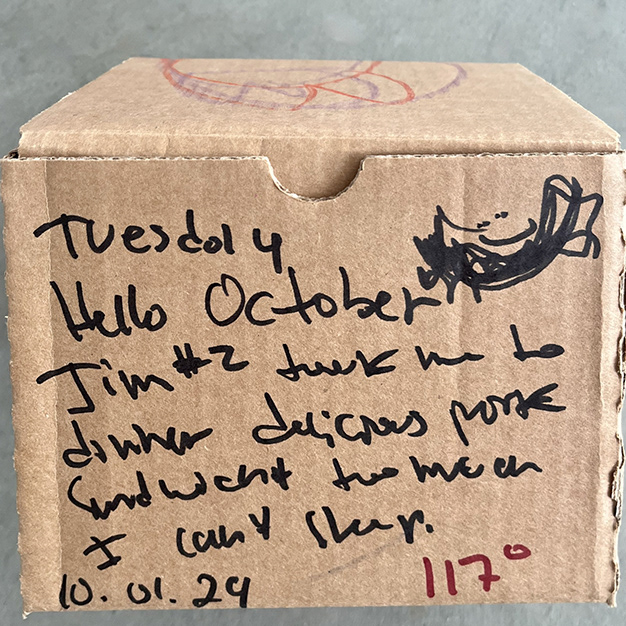 Tuesday
Hello October
Jim #2 took me to
dinner delicious pork
Sandwich too much
I can't sleep.
10.01.24 117°